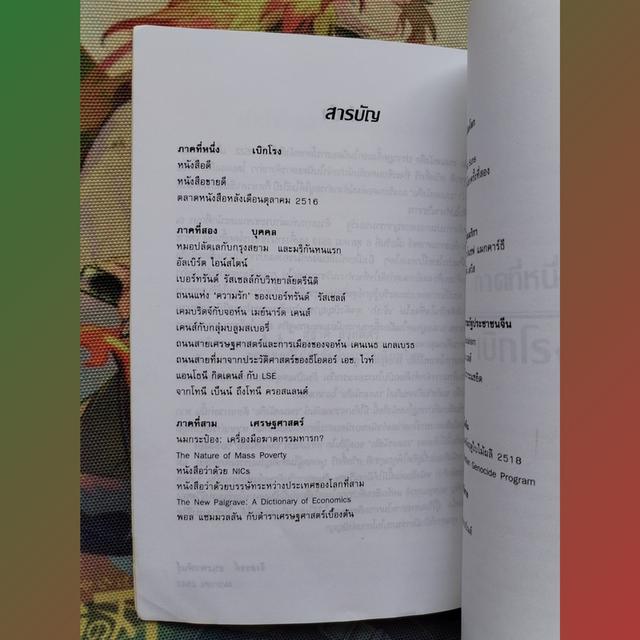 สารบัญ
ภาคที่หนึ่ง เบิกโรง
หนังสือดี
หนังสือขายดี
ตลาดหนังสือหลังเดือนตุลาคม 2516
ภาคที่สอง บุคคล
หมอปลัดเลกับกรุงสยาม และมริกันหนแรก
อัลเบิร์ต ไอน์สไตน์
เบอร์ทรันด์ รัสเซลล์กับวิทยาลัยตรีนิตี
ถนนแห่ง 'ความรัก' ของเบอร์ทรันด์ รัสเซลล์
เคมบริดจ์กับจอห์น เมย์นาร์ด เคนส์
เคนส์กับกลุ่มบลูมสเบอรี่
ถนนสายเศรษฐศาสตร์และการเมืองของจอห์น เคนเนธ แกลเบรธ
ถนนสายที่มาจากประวัติศาสตร์ของธีโอดอร์ เอช. ไวท์
แอนโธนี กิดเดนส์ กับ LSE
จากโทนี เบ็นน์ ถึงโทนี ครอสแลนด์
ภาคที่สาม เศรษฐศาสตร์
นมกระป๋อง: เครื่องมือฆาตกรรมทารก?
The Nature of Mass Poverty
หนังสือว่าด้วย NICs
หนังสือว่าด้วยบรรษัทระหว่างประเทศของโลกที่สาม
The New Palgrave: A Dictionary of Economics
พอล แซมมวลสัน กับตำราเศรษฐศาสตร์เบื้องต้น
แมกคาร์ธี
รัฐประชาชนจีน
ใบไม้ผลิ 2518
Genocide Program